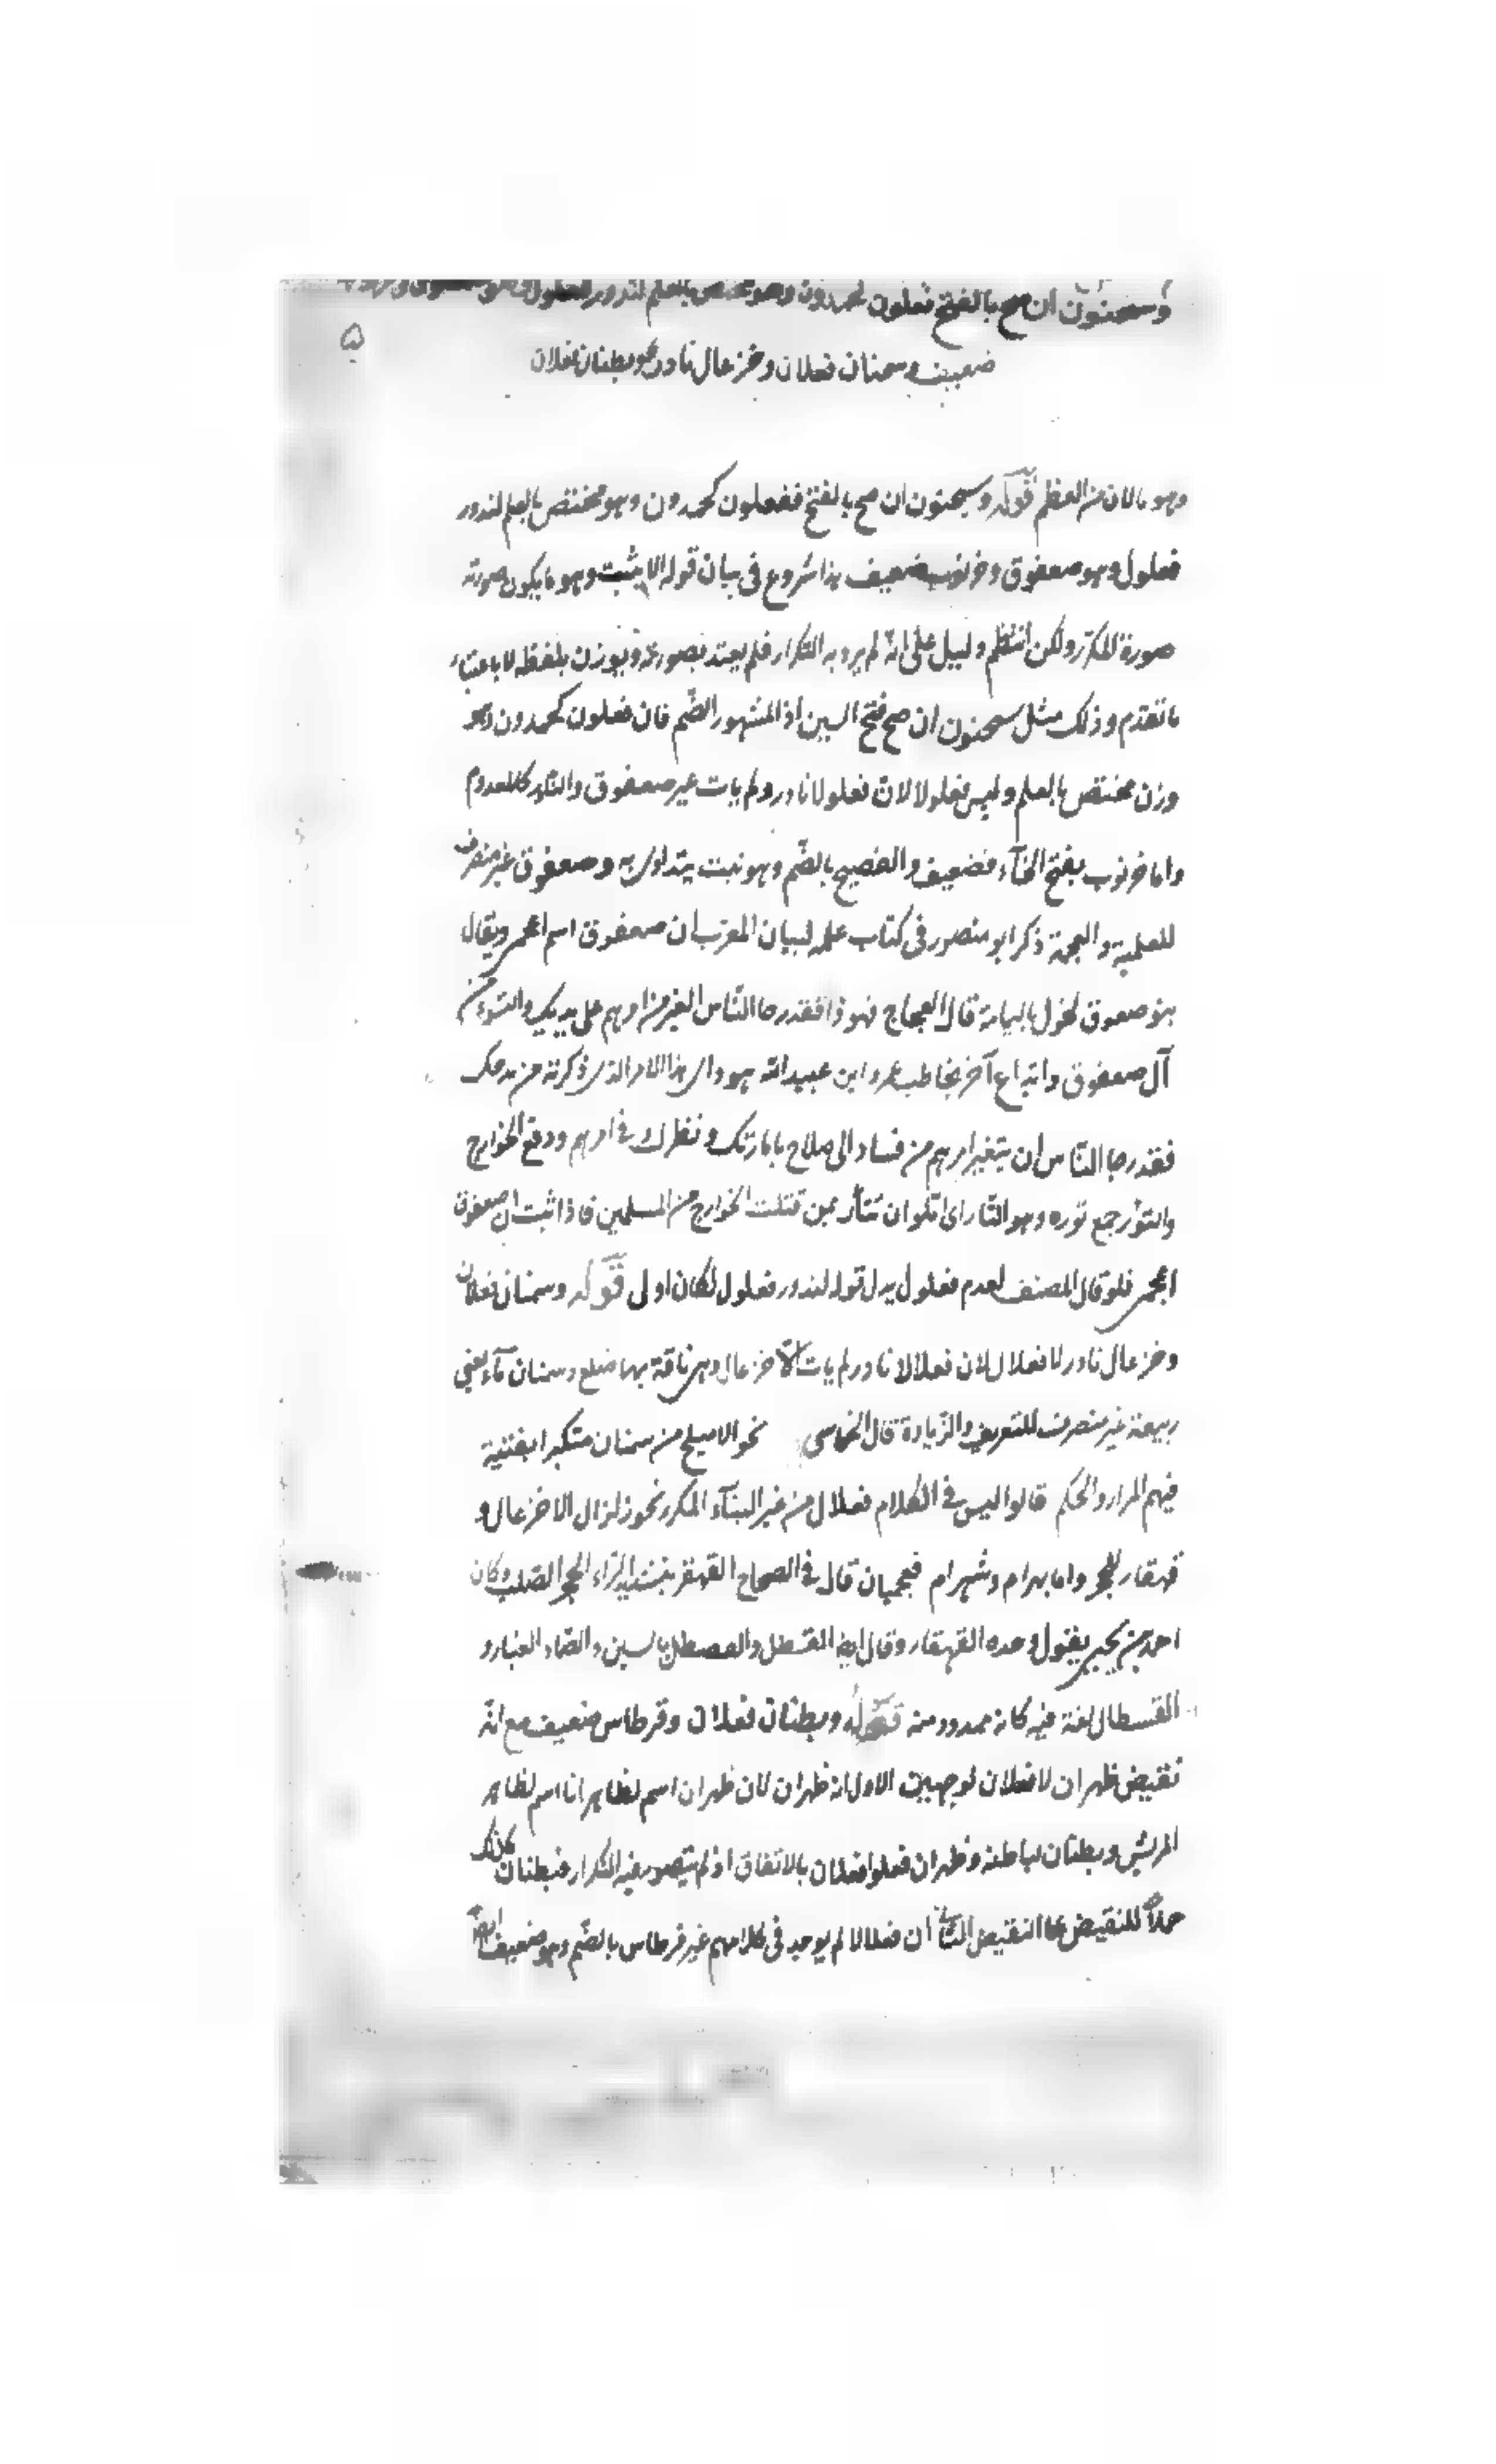 وسحنون ان صح بالفتح فعلون كحمدون وهو مختص بالعلم لندور فعلول وهو صعفوق وخرنوب
ضعيف وسمنان فعلان وخزعال نادر وبطنان فعلان
۵
وهو ما لان من العظم قوله وسحنون ان صح بالفتح ففعلون كحمدون وهو مختص بالعلم لندور
فعلول وهو صعفوق وخرنوب ضعيف هذا شروع في بيان قوله الا بثبت وهو ما يكون صورته
صورة المكرر ولكن انتظم دليل على انه لم يرد به التكرار فلم يعتد بصورته ويوزن بلفظه لا باعتبار
ما تقدم وذلك مثل سحنون ان صح فتح السين اذ المشهور الضم فان فعلون كحمدون وهو
وزن مختص بالعلم وليس فعلولا لان فعلولا نادر ولم يات غير صعفوق والنادر كالمعدوم
واما خرنوب بفتح الخآء فضعيف والفصيح بالضم وهو نبت يتداوى به وصعفوق غير منصرف
للعلمية والعجمة ذكر ابو منصور في كتاب عمله لبيان المعرب ان صعفوق اسم اعجمي ويقال
بنو صعفوق لخول باليمامة قال العجاج فهو ذا فقد رجا الناس الغير من امرهم على يديك والثؤر من
آل صعفوق واتباع آخر يخاطب عمر ابن عبيد الله هو ذا اى هذا الامر الذى ذكرته من مدحك
فقد رجا الناس ان يتغير امرهم من فساد الى صلاح بامارتك ونظرك في امرهم ودفع الخوارج
والثؤر جمع ثوره وهو الثار اى املوا ان تثأر بمن قتلت الخوارج من المسلمين فاذا ثبت ان صعفوق
اعجمى فلو قال المصنف لعدم فعلول بدل قوله لندور فعلول لكان اولى قوله وسمنان فعلان
وخزعال نادر لا فعلال لان فعلالا نادر لم يات الا خزعال وهى ناقة بها ضلع وسمنان مآء لبنى
ربيعة غير منصرف للتعريف والزيادة قال الحماسى نحو الاميلح من سمنان مبتكرا بفتية
فيهم المرار والحكم قالوا ليس في الكلام فعلال من غير البنآء المكرر نحو زلزال الا خزعال و
قهقار للحجر واما بهرام وشهرام فعجميان قال في الصحاح القهقر بتشديد الراء الحجر الصلب وكان
احمد بن يحيى يقول وحده القهقار وقال ايضا القسطل والقصطل بالسين والصاد الغبار و
القسطال لغة فيه كانه ممدود منه قوله وبطنان فعلان وقرطاس ضعيف مع انه
نقيض ظهران لا فعلال لوجهين الاول انه ظهران لان ظهران اسم لظاهر انا اسم لظاهر
الريش وبطنان لباطنه وظهران فعلان بالاتفاق اذ لم يتصور فيه التكرار فبطنان كذلك
حملا للنقيض على النقيض الثاني ان فعلالا لم يوجد في كلامهم غير قرطاس بالضم وهو ضعيف ايضا